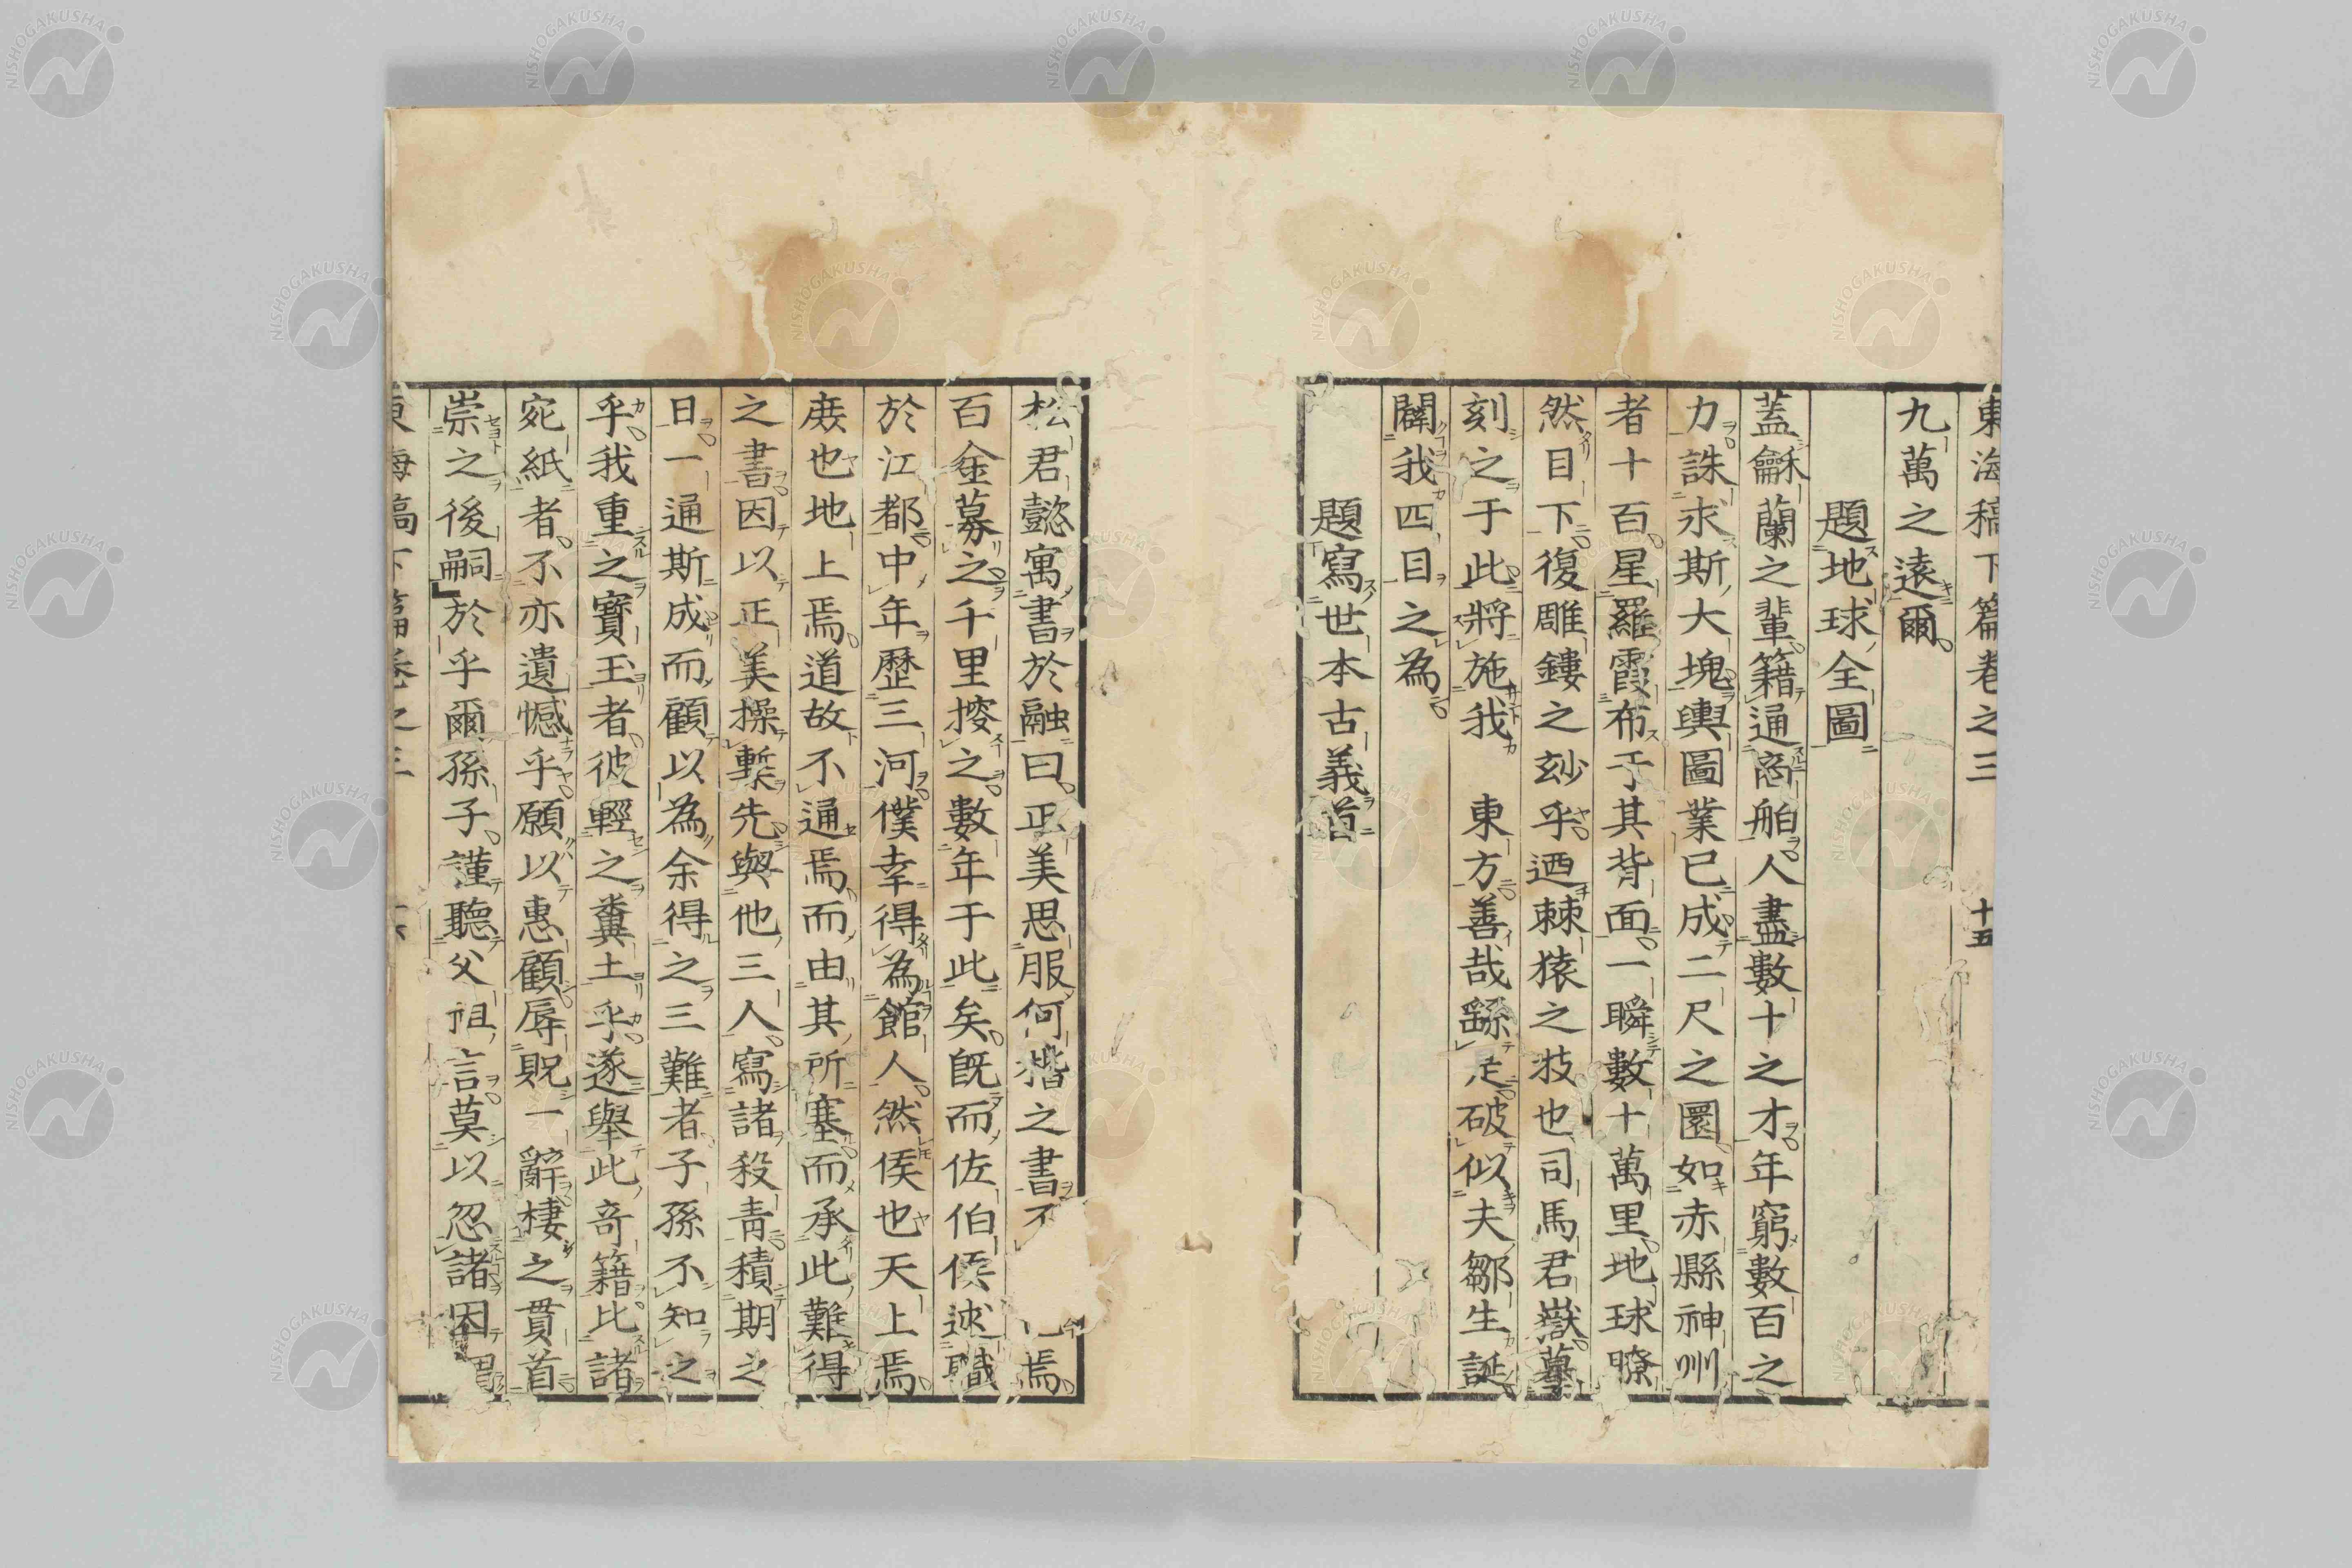 東海稿下篇卷之三 十五
九萬之遠爾
題地球全圖
蓋龢蘭之輩籍通商舶人盡數十之才年窮數百之
力誅求斯大塊輿圖業已成二尺之圜如赤縣神州
者十百星羅霞布于其背面一瞬數十萬里地球瞭
然目下復雕鏤之玅乎迺棘猿之技也司馬君嶽摹
刻之于此將施我 東方善哉繇是破似夫鄒生誕
闢我四目之為
題寫世本古義首
松君懿寓書於融曰正美思服何楷之書不 焉
百金募之千里搜之數年于此矣既而佐伯侯述職
於江都中年歷三河僕幸得為館人然侯也天上焉
庚也地上焉道故不通焉而由其所塞而承此難得
之書因以正美操槧先與他三人寫諸殺青積期之
日一通斯成而顧以為余得之三難者子孫不知之
乎我重之寶玉者彼輕之糞土乎遂舉此奇籍比諸
宛紙者不亦遺憾乎願以惠顧辱貺一辭棲之貫首
崇之後嗣於乎爾孫子謹聽父祖言莫以忽諸因
東海稿下篇卷之三
NISHOGAKUSHA